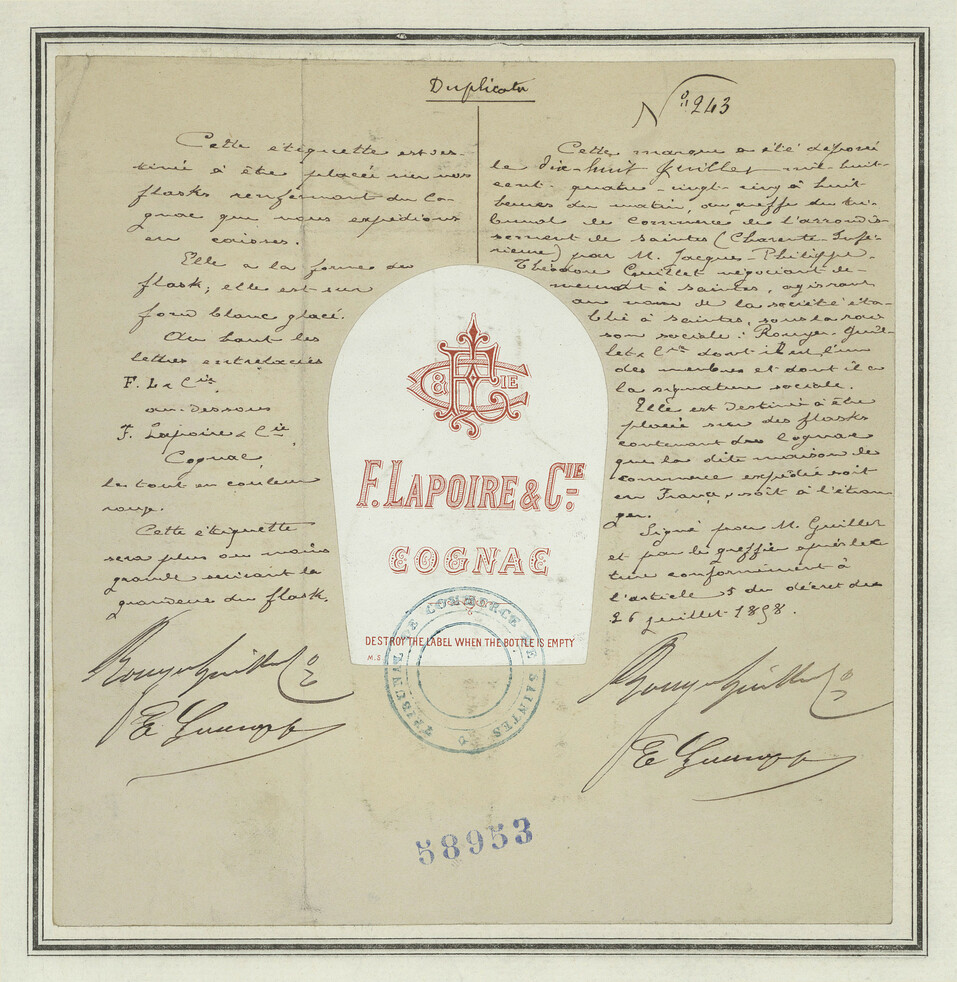 Duplicata
Cette étiquette est des-
tinée à être placée sur nos
flasks renfermant du Co-
gnac que nous expédions
en caisses.
Elle a la forme du
flask; elle est sur
fond blanc glacé.
Au haut les
lettres entrelacées
F. L & Cie
au-dessous
F. Lapoire & Cie
Cognac,
le tout en couleur
rouge.
Cette étiquette
sera plus ou moins
grande suivant la
grandeur du flask.
Rouyer Guillet Co
No 243
Cette marque a été déposée
le dix-huit Juillet mil huit-
cent-quatre-vingt-cinq à huit
heures du matin, au greffe du tri-
bunal de commerce de l'arrondis-
sement de Saintes (Charente-Infé-
rieure) par M. Jacques-Philippe-
Théodore Guillet négociant de-
meurant à Saintes, agissant
au nom de la société éta-
blie à Saintes, sous la rai-
son sociale: Rouyer, Guil-
let & Cie dont il est l'un
des membres et dont il a
la signature sociale.
Elle est destinée à être
placée sur des flasks
contenant du Cognac
que la dite maison de
commerce expédie soit
en France, soit à l'étran-
ger.
Signé par M. Guillet
et par le greffier après lec-
ture conformément à
l'article 5 du décret du
26 juillet 1858.
Rouyer Guillet Co
& CIE
F. LAPOIRE & CIE
COGNAC
DESTROY THE LABEL WHEN THE BOTTLE IS EMPTY
M.S.
TRIBUNAL DE COMMERCE DE SAINTES
58953